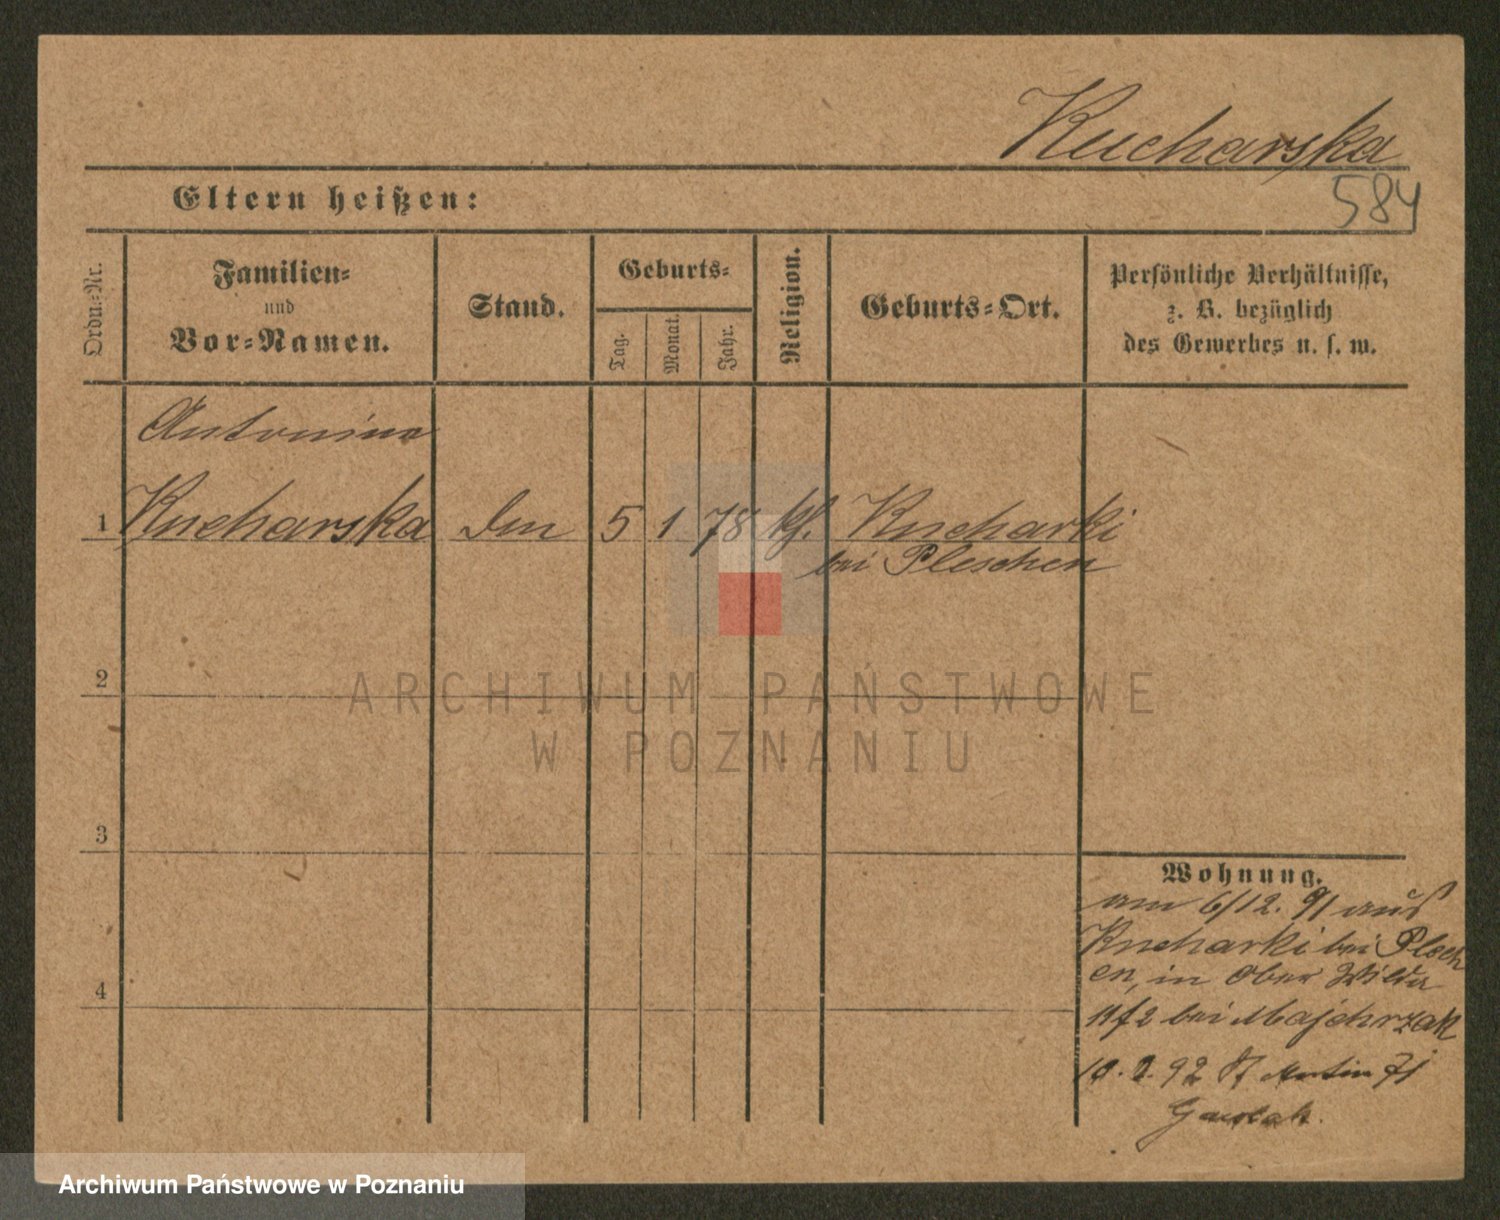 Kucharska
584
Eltern heißen:
Ordn.=Nr.
Familien=
und
Vor=Namen.
Stand.
Geburts=
Tag.
Monat.
Jahr.
Religion.
Geburts=Ort.
Persönliche Verhältnisse,
z. B. bezüglich
des Gewerbes u. s. w.
Antonina
1 Kucharska 5 1 78 kf. Kucharki
bei Pleschen
2
3
4
Wohnung.
am 6/12. 91 aus
Kucharki bei Plesch
en, in Ober Wilda
bei Majchrzak
92 St Martin 71
ARCHIWUM PAŃSTWOWE
W POZNANIU
Archiwum Państwowe w Poznaniu